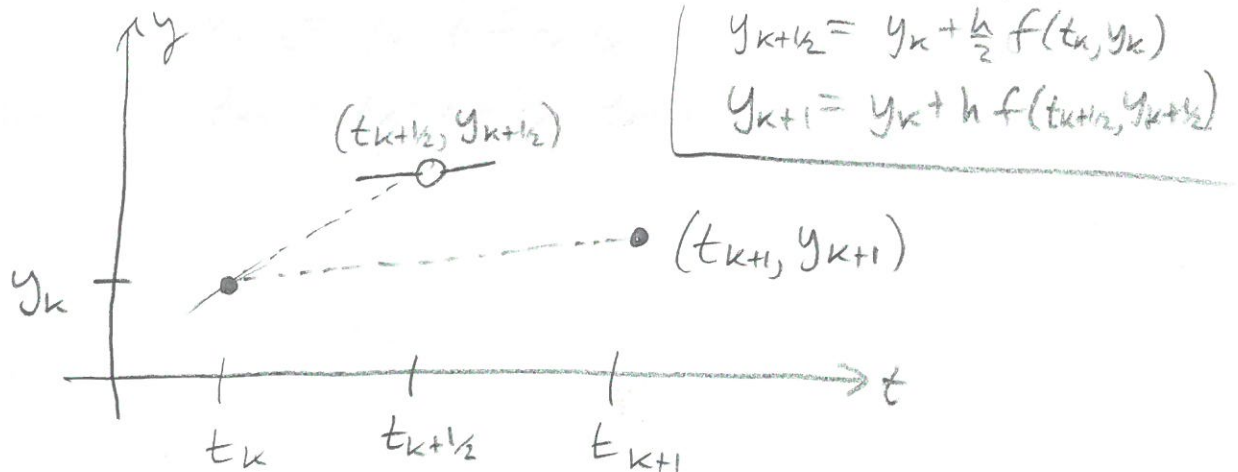 y
y_{k+1/2} = y_k + h/2 f(t_k, y_k)
y_{k+1} = y_k + h f(t_{k+1/2}, y_{k+1/2})
(t_{k+1/2}, y_{k+1/2})
(t_{k+1}, y_{k+1})
y_k
t
t_k t_{k+1/2} t_{k+1}